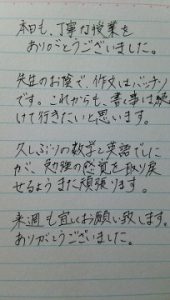 本日も、丁寧な授業を
ありがとうございました。
先生のお陰で、作文はバッチリ
です。これからも、書く事は続
けて行きたいと思います。
久しぶりの数学と英語でした
が、勉強の感覚を取り戻
せるようまた頑張ります。
来週も宜しくお願い致します。
ありがとうございました。